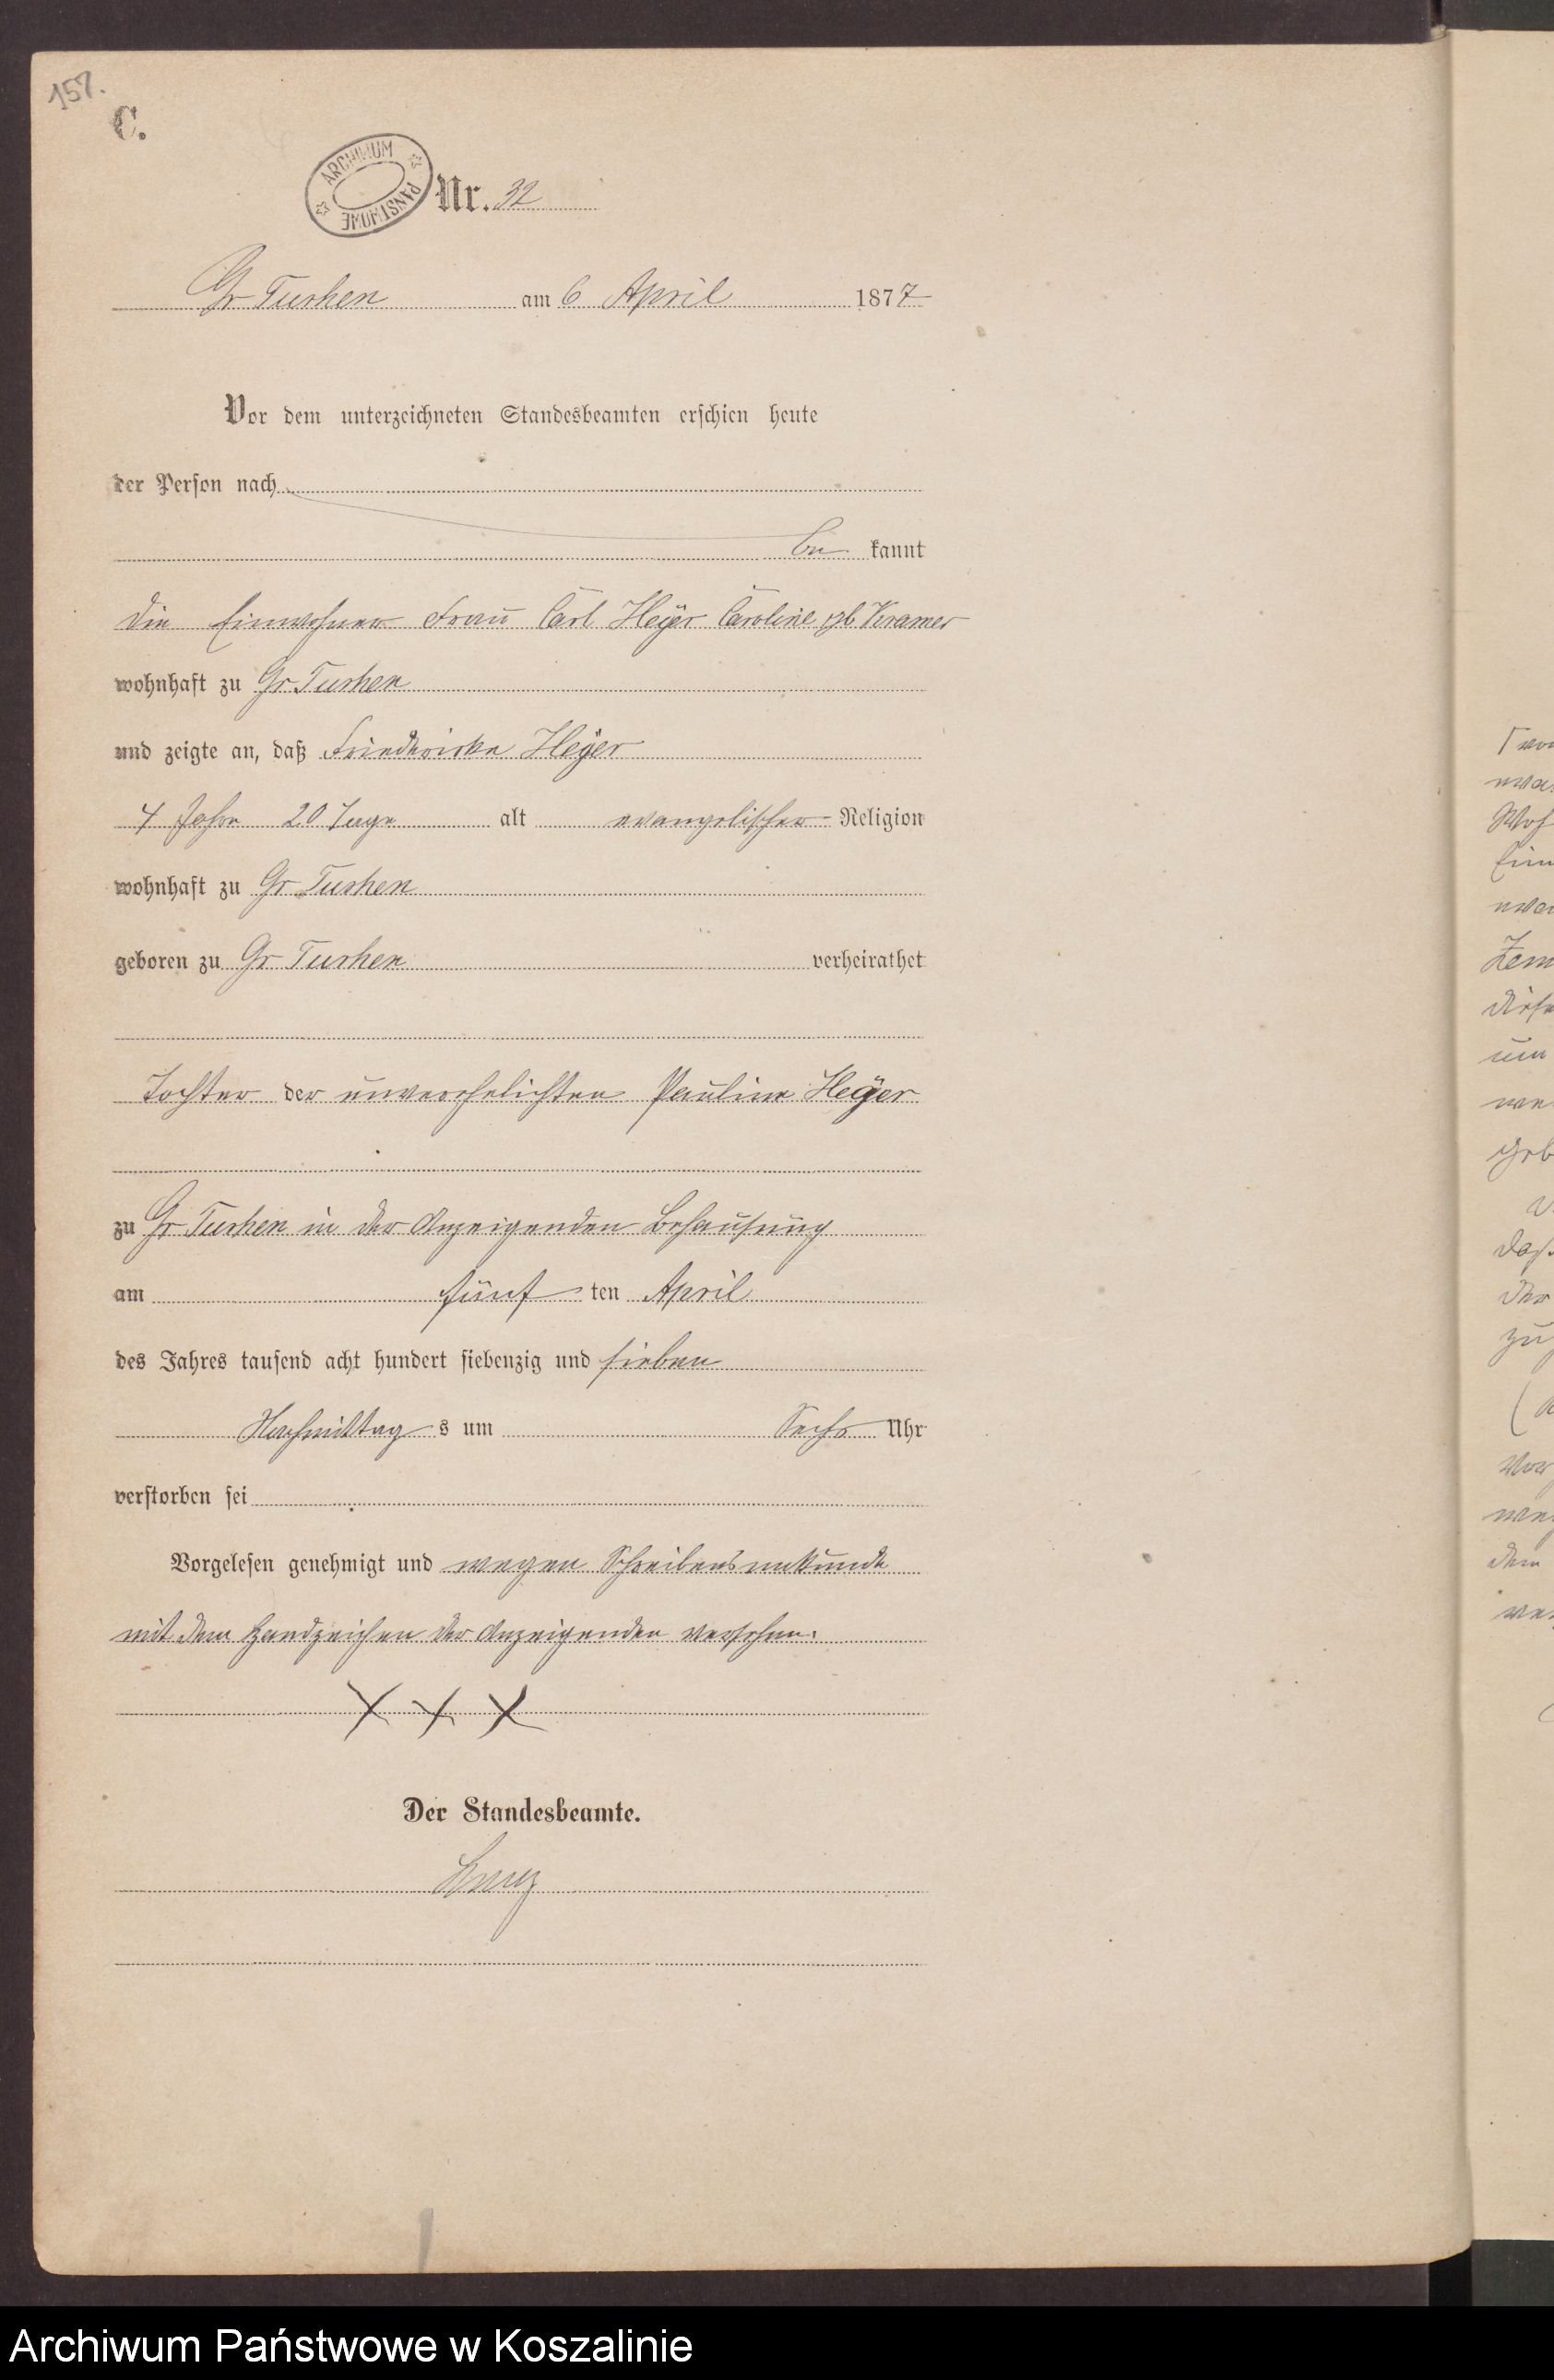 157.
C.
ARCHIWUM PAŃSTWOWE
Nr. 32
Gr Tuchen am 6 April 1877
Vor dem unterzeichneten Standesbeamten erschien heute
der Person nach
be kannt
die Einwohner Frau Carl Heÿer Caroline gb Kramer
wohnhaft zu Gr. Tuchen
und zeigte an, daß Friederike Heÿer
4 Jahre 20 Tage alt evangelischer Religion
wohnhaft zu Gr Tuchen
geboren zu Gr Tuchen verheirathet
Tochter der unverehelichten Pauline Heÿer
zu Gr Tuchen in der Anzeigenden Behausung
am fünf ten April
des Jahres tausend acht hundert siebenzig und sieben
Nachmittag s um Sechs Uhr
verstorben sei
Vorgelesen genehmigt und wegen Schreibensunkunde
mit dem Handzeichen der Anzeigenden versehen.
X X X
Der Standesbeamte.
Archiwum Państwowe w Koszalinie